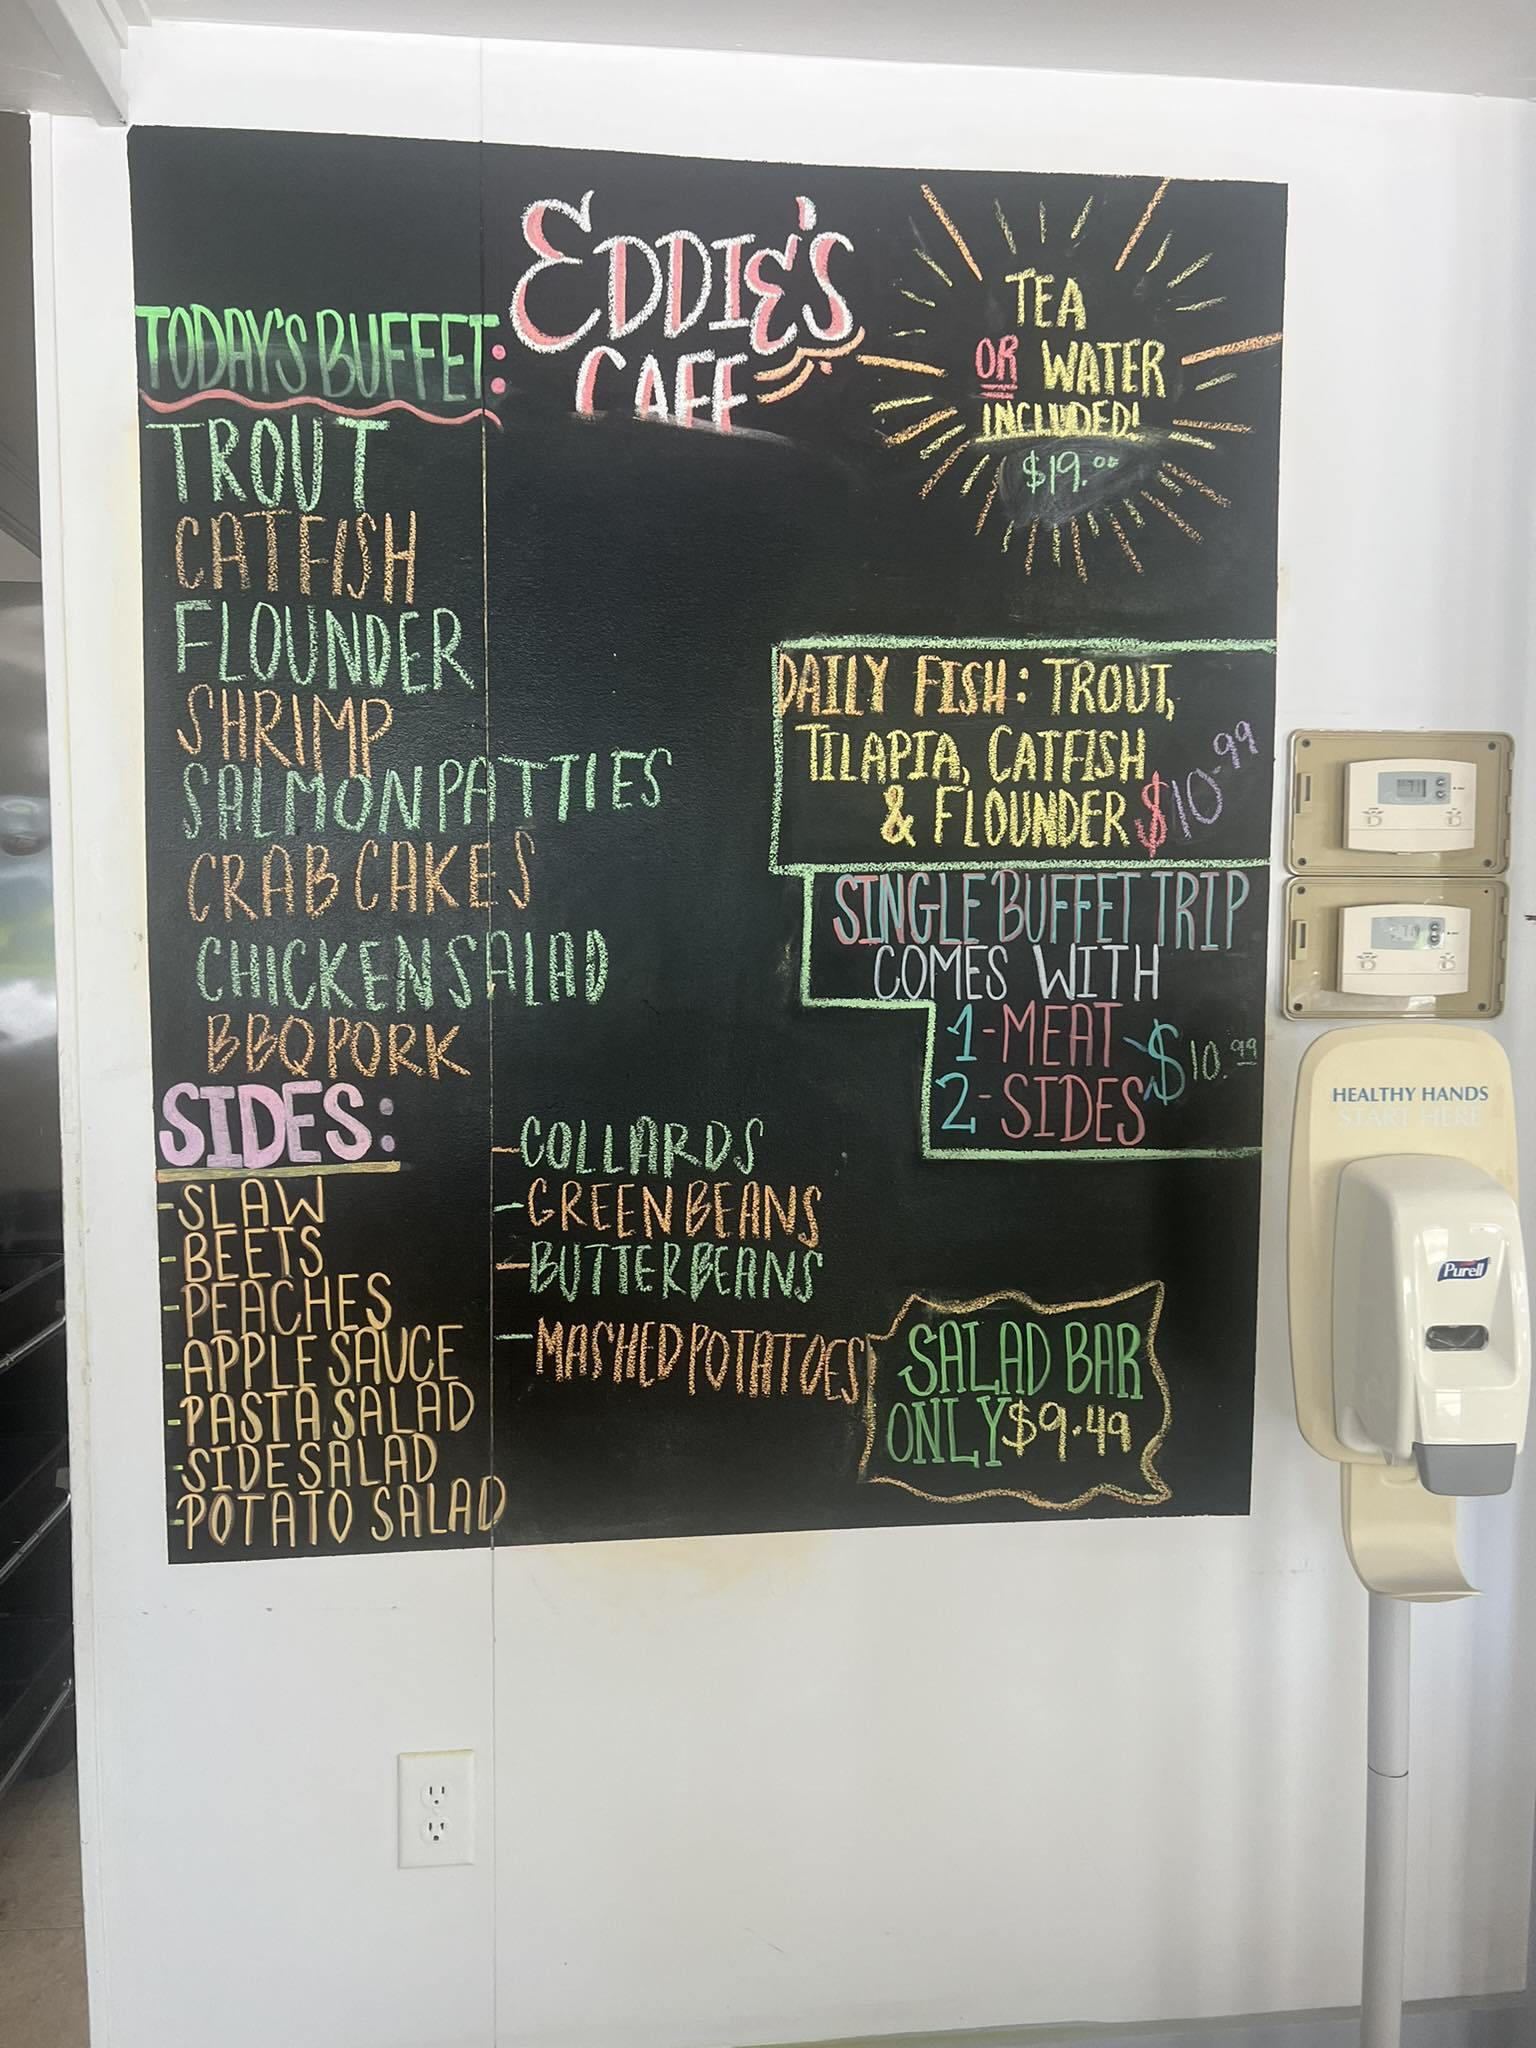 EDDIE'S
CAFE
TODAY'S BUFFET:
TROUT
CATFISH
FLOUNDER
SHRIMP
SALMON PATTIES
CRAB CAKES
CHICKEN SALAD
BBQ PORK
SIDES:
-SLAW
-BEETS
-PEACHES
-APPLE SAUCE
-PASTA SALAD
-SIDE SALAD
-POTATO SALAD
-COLLARDS
-GREEN BEANS
-BUTTERBEANS
-MASHED POTATOES
TEA
OR WATER
INCLUDED!
$19.00
DAILY FISH: TROUT,
TILAPIA, CATFISH
& FLOUNDER $10.99
SINGLE BUFFET TRIP
COMES WITH
1-MEAT
2-SIDES
$10.99
SALAD BAR
ONLY $9.49
HEALTHY HANDS
START HERE
Purell